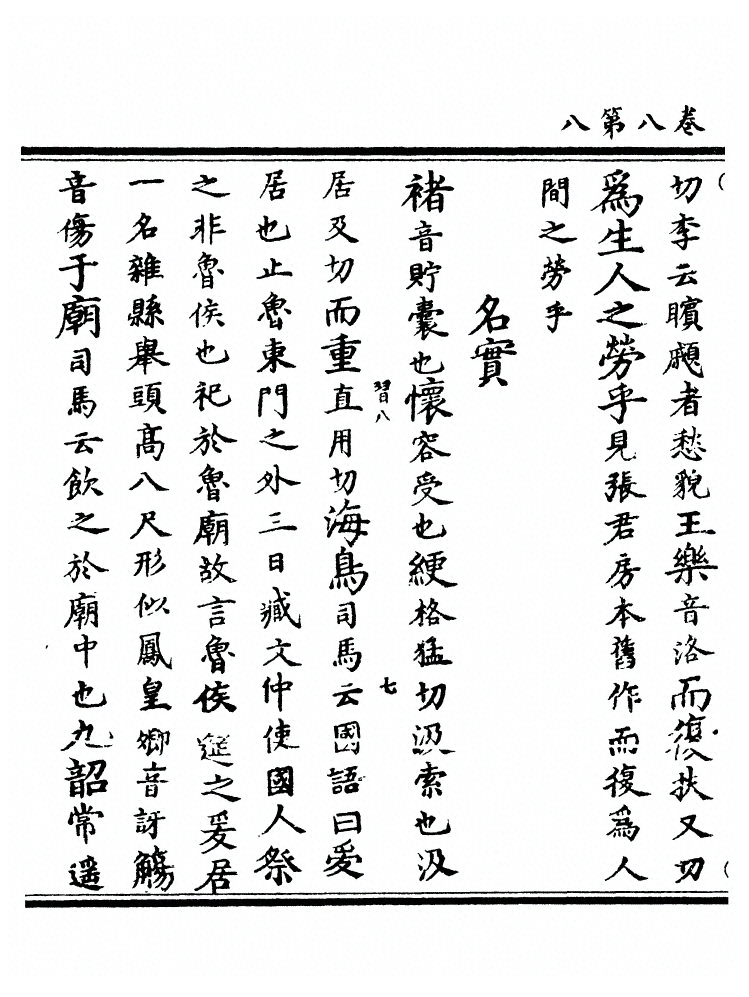 卷八第八
切李云矉顣者愁貌王樂音洛而復扶又切
為生人之勞乎見張君房本舊作而復為人
間之勞乎
名實
褚音貯囊也懷容受也綆格猛切汲索也汲
居及切而重直用切海鳥司馬云國語曰爰
習八
七
居也止魯東門之外三日臧文仲使國人祭
之非魯侯也祀於魯廟故言魯侯筵之爰居
一名雜縣舉頭高八尺形似鳳皇御音訝觴
音傷于廟司馬云飲之於廟中也九韶常遥